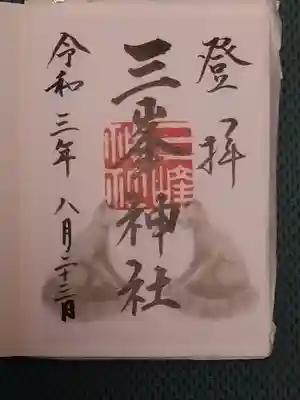 登拝
三峯神社
令和三年 八月二十三日